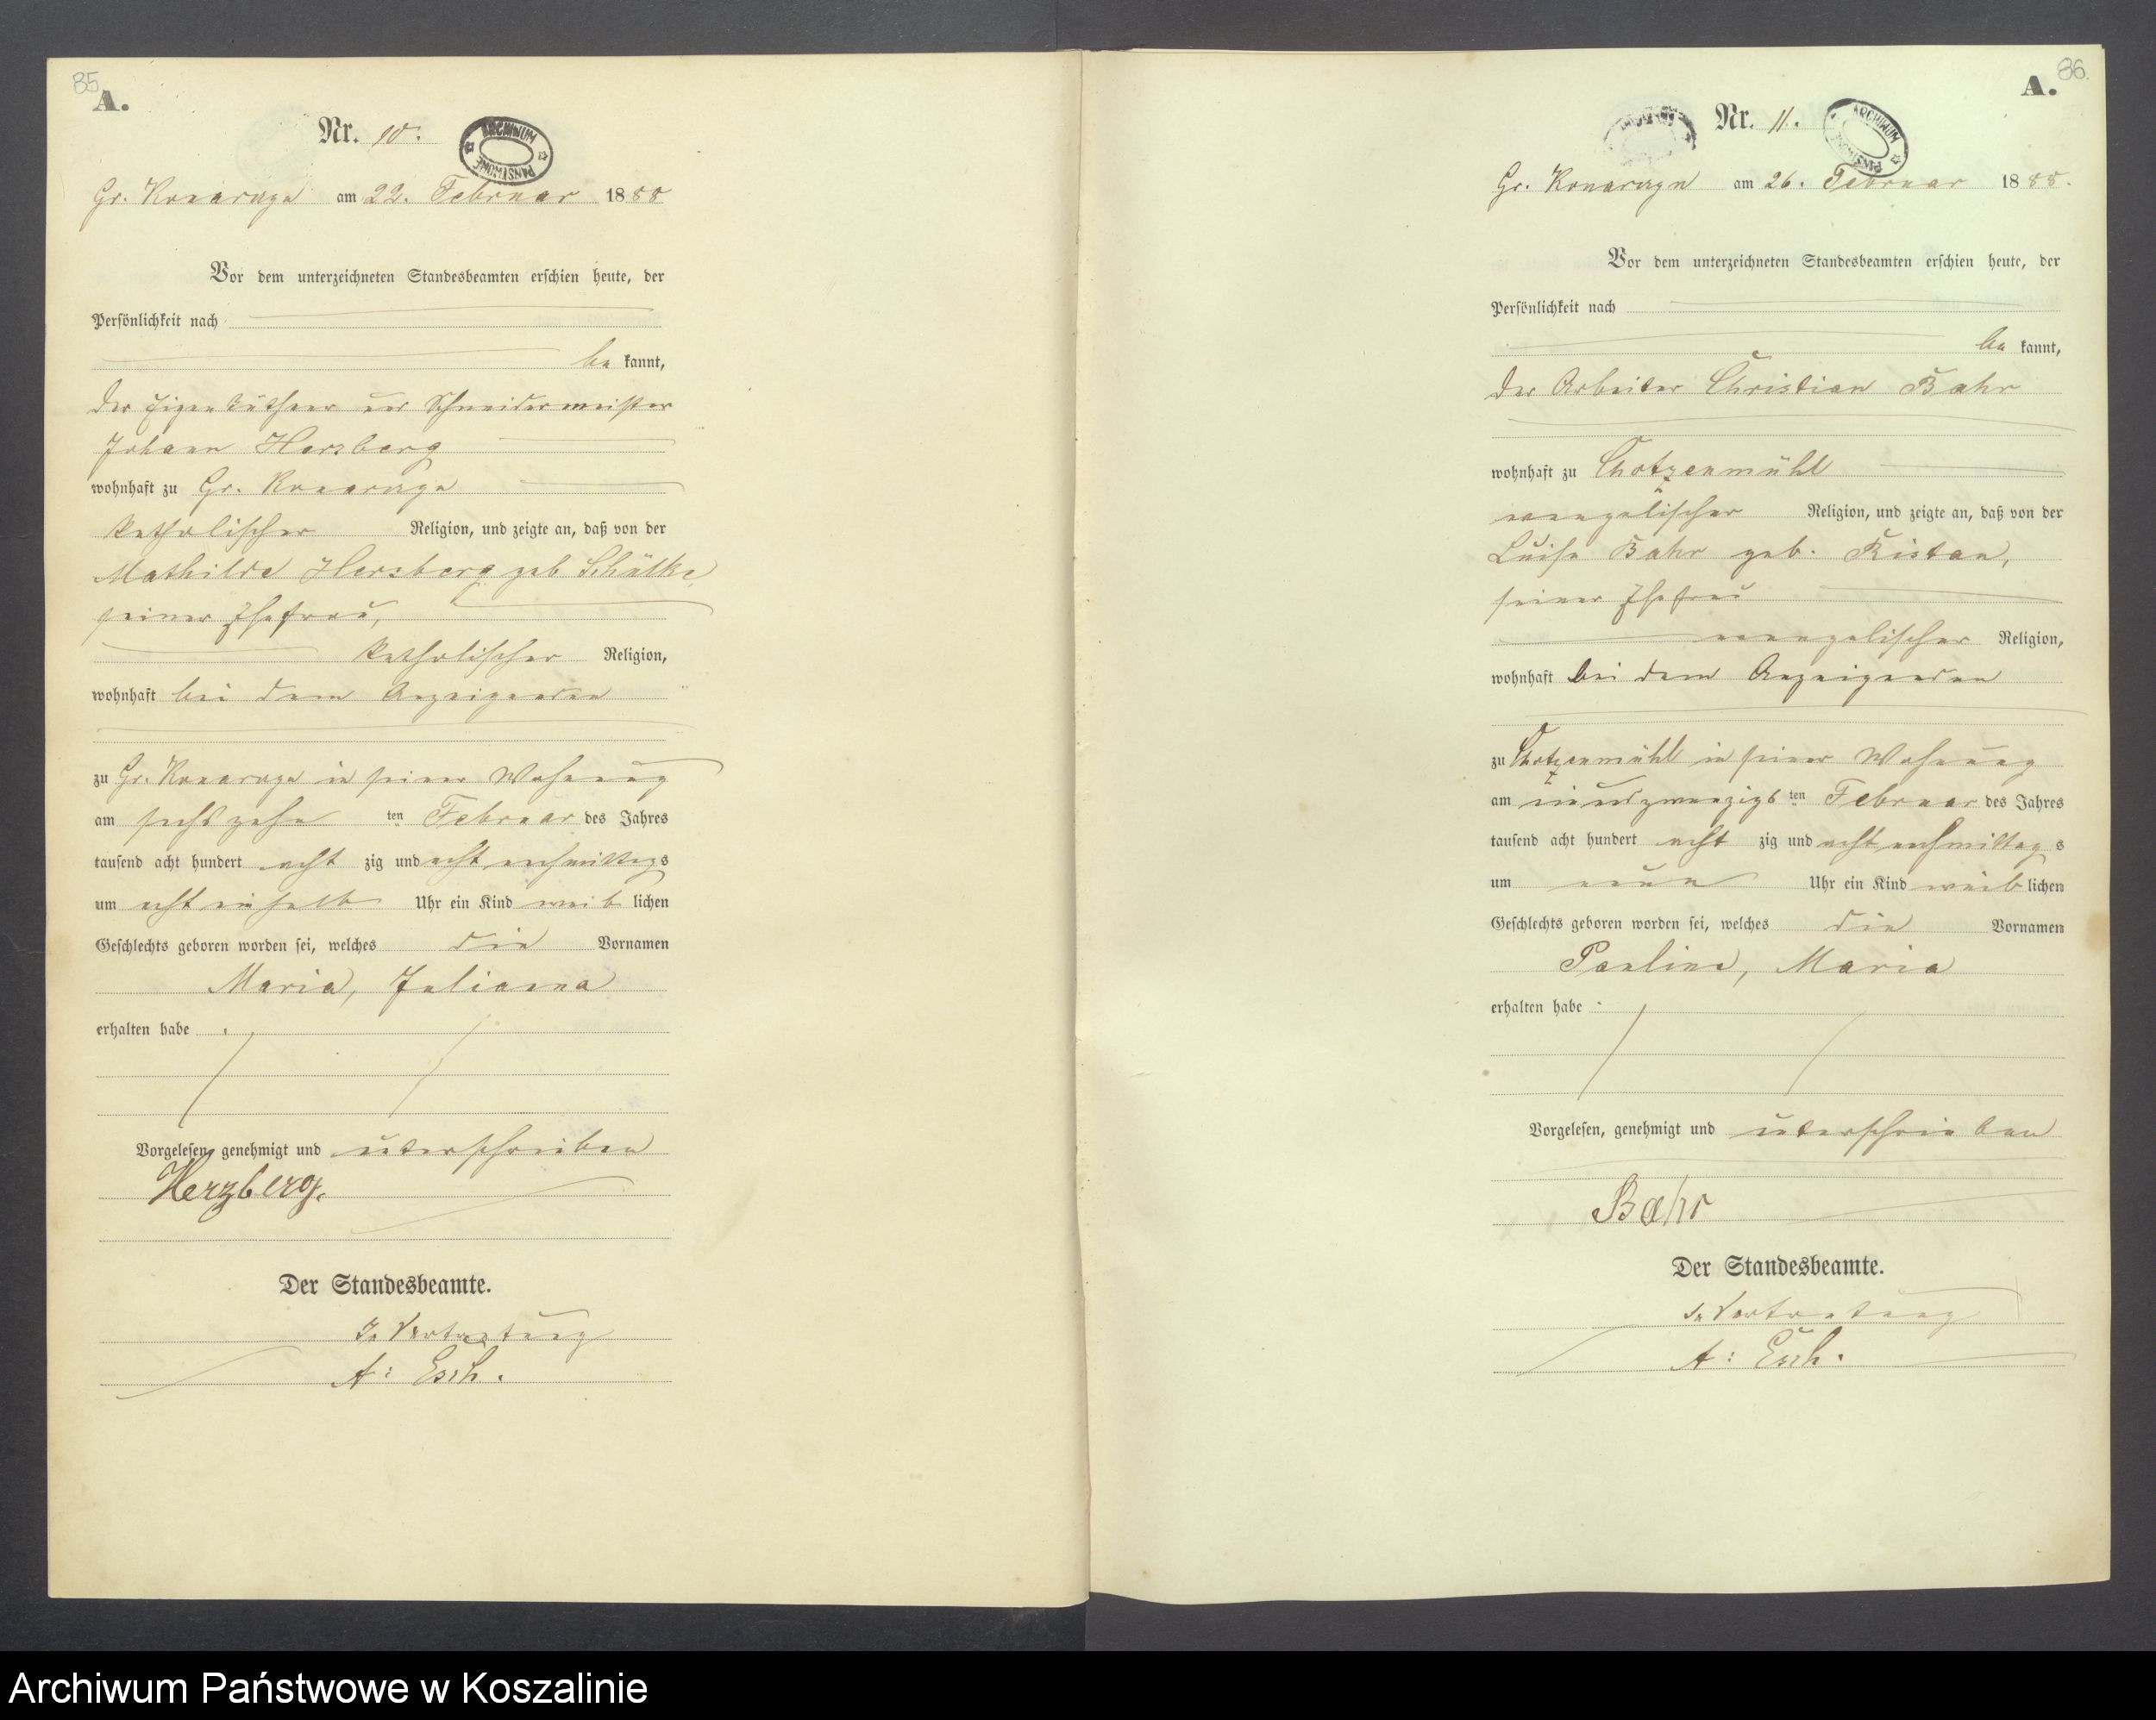 85
A.
Nr. 10.
ARCHIWUM PAŃSTWOWE
Gr. Konarczyn am 22. Februar 1888
Vor dem unterzeichneten Standesbeamten erschien heute, der
Persönlichkeit nach
be kannt,
der Eigenkäthner und Schneidermeister
Johann Herzberg
wohnhaft zu Gr. Konarczyn
katholischer Religion, und zeigte an, daß von der
Mathilde Herzberg geb
seiner Ehefrau,
katholischer Religion,
wohnhaft bei dem Anzeigenden
zu Gr. Konarczyn in seiner Wohnung
am sechszehn ten Februar des Jahres
tausend acht hundert acht zig und acht nachmittags
um acht einhalb Uhr ein Kind weib lichen
Geschlechts geboren worden sei, welches die Vornamen
Maria, Julianna
erhalten habe .
Vorgelesen, genehmigt und unterschrieben
Herzberg.
Der Standesbeamte.
In Vertretung
A: Esch.
86.
A.
Nr. 11.
ARCHIWUM PAŃSTWOWE
Gr. Konarczyn am 26. Februar 1888.
Vor dem unterzeichneten Standesbeamten erschien heute, der
Persönlichkeit nach
be kannt,
der Arbeiter Christian Bahr
wohnhaft zu Chotzenmühl
evangelischer Religion, und zeigte an, daß von der
Luise Bahr geb. Ristau,
seiner Ehefrau
evangelischer Religion,
wohnhaft bei dem Anzeigenden
zu Chotzenmühl in seiner Wohnung
am einundzwanzigs ten Februar des Jahres
tausend acht hundert acht zig und acht nachmittag s
um neun Uhr ein Kind weib lichen
Geschlechts geboren worden sei, welches die Vornamen
Pauline, Maria
erhalten habe .
Vorgelesen, genehmigt und unterschrieben
Bahr
Der Standesbeamte.
In Vertretung
A: Esch.
Archiwum Państwowe w Koszalinie